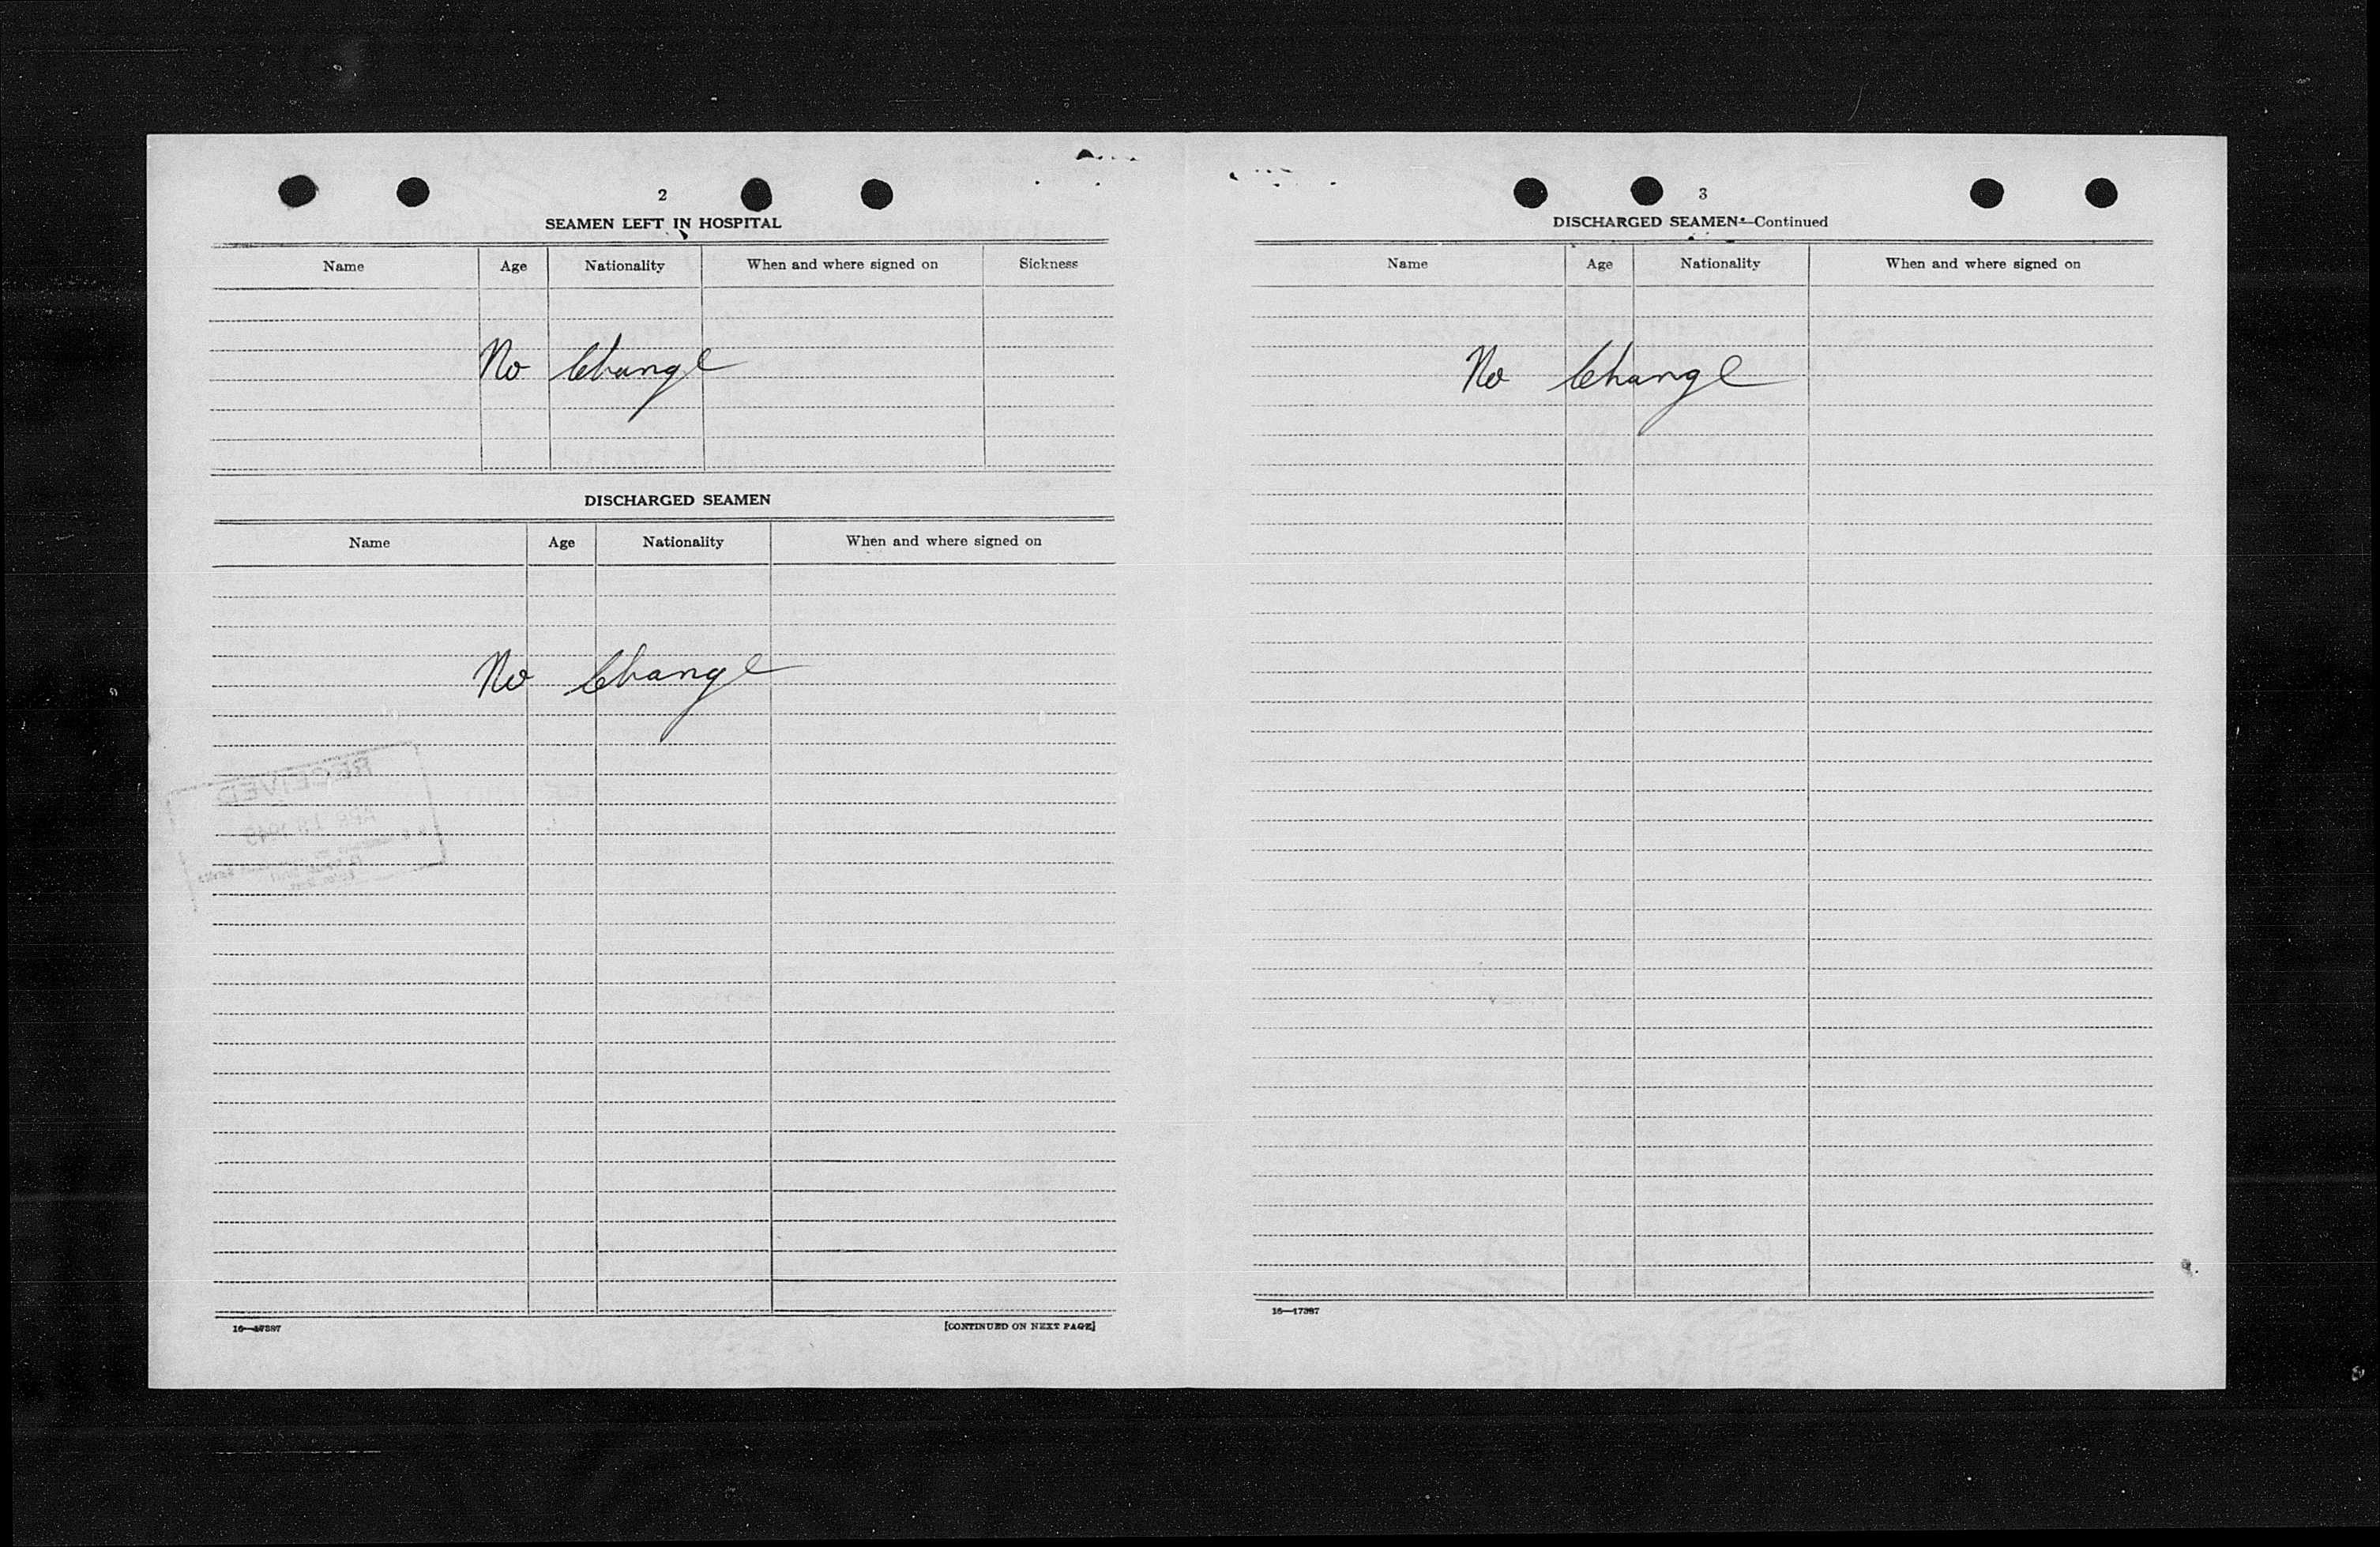 2
SEAMEN LEFT IN HOSPITAL
Name Age Nationality When and where signed on Sickness
No Change
DISCHARGED SEAMEN
Name Age Nationality When and where signed on
No Change
RECEIVED
16—17387
[CONTINUED ON NEXT PAGE]
3
DISCHARGED SEAMEN—Continued
Name Age Nationality When and where signed on
No Change
16—17387